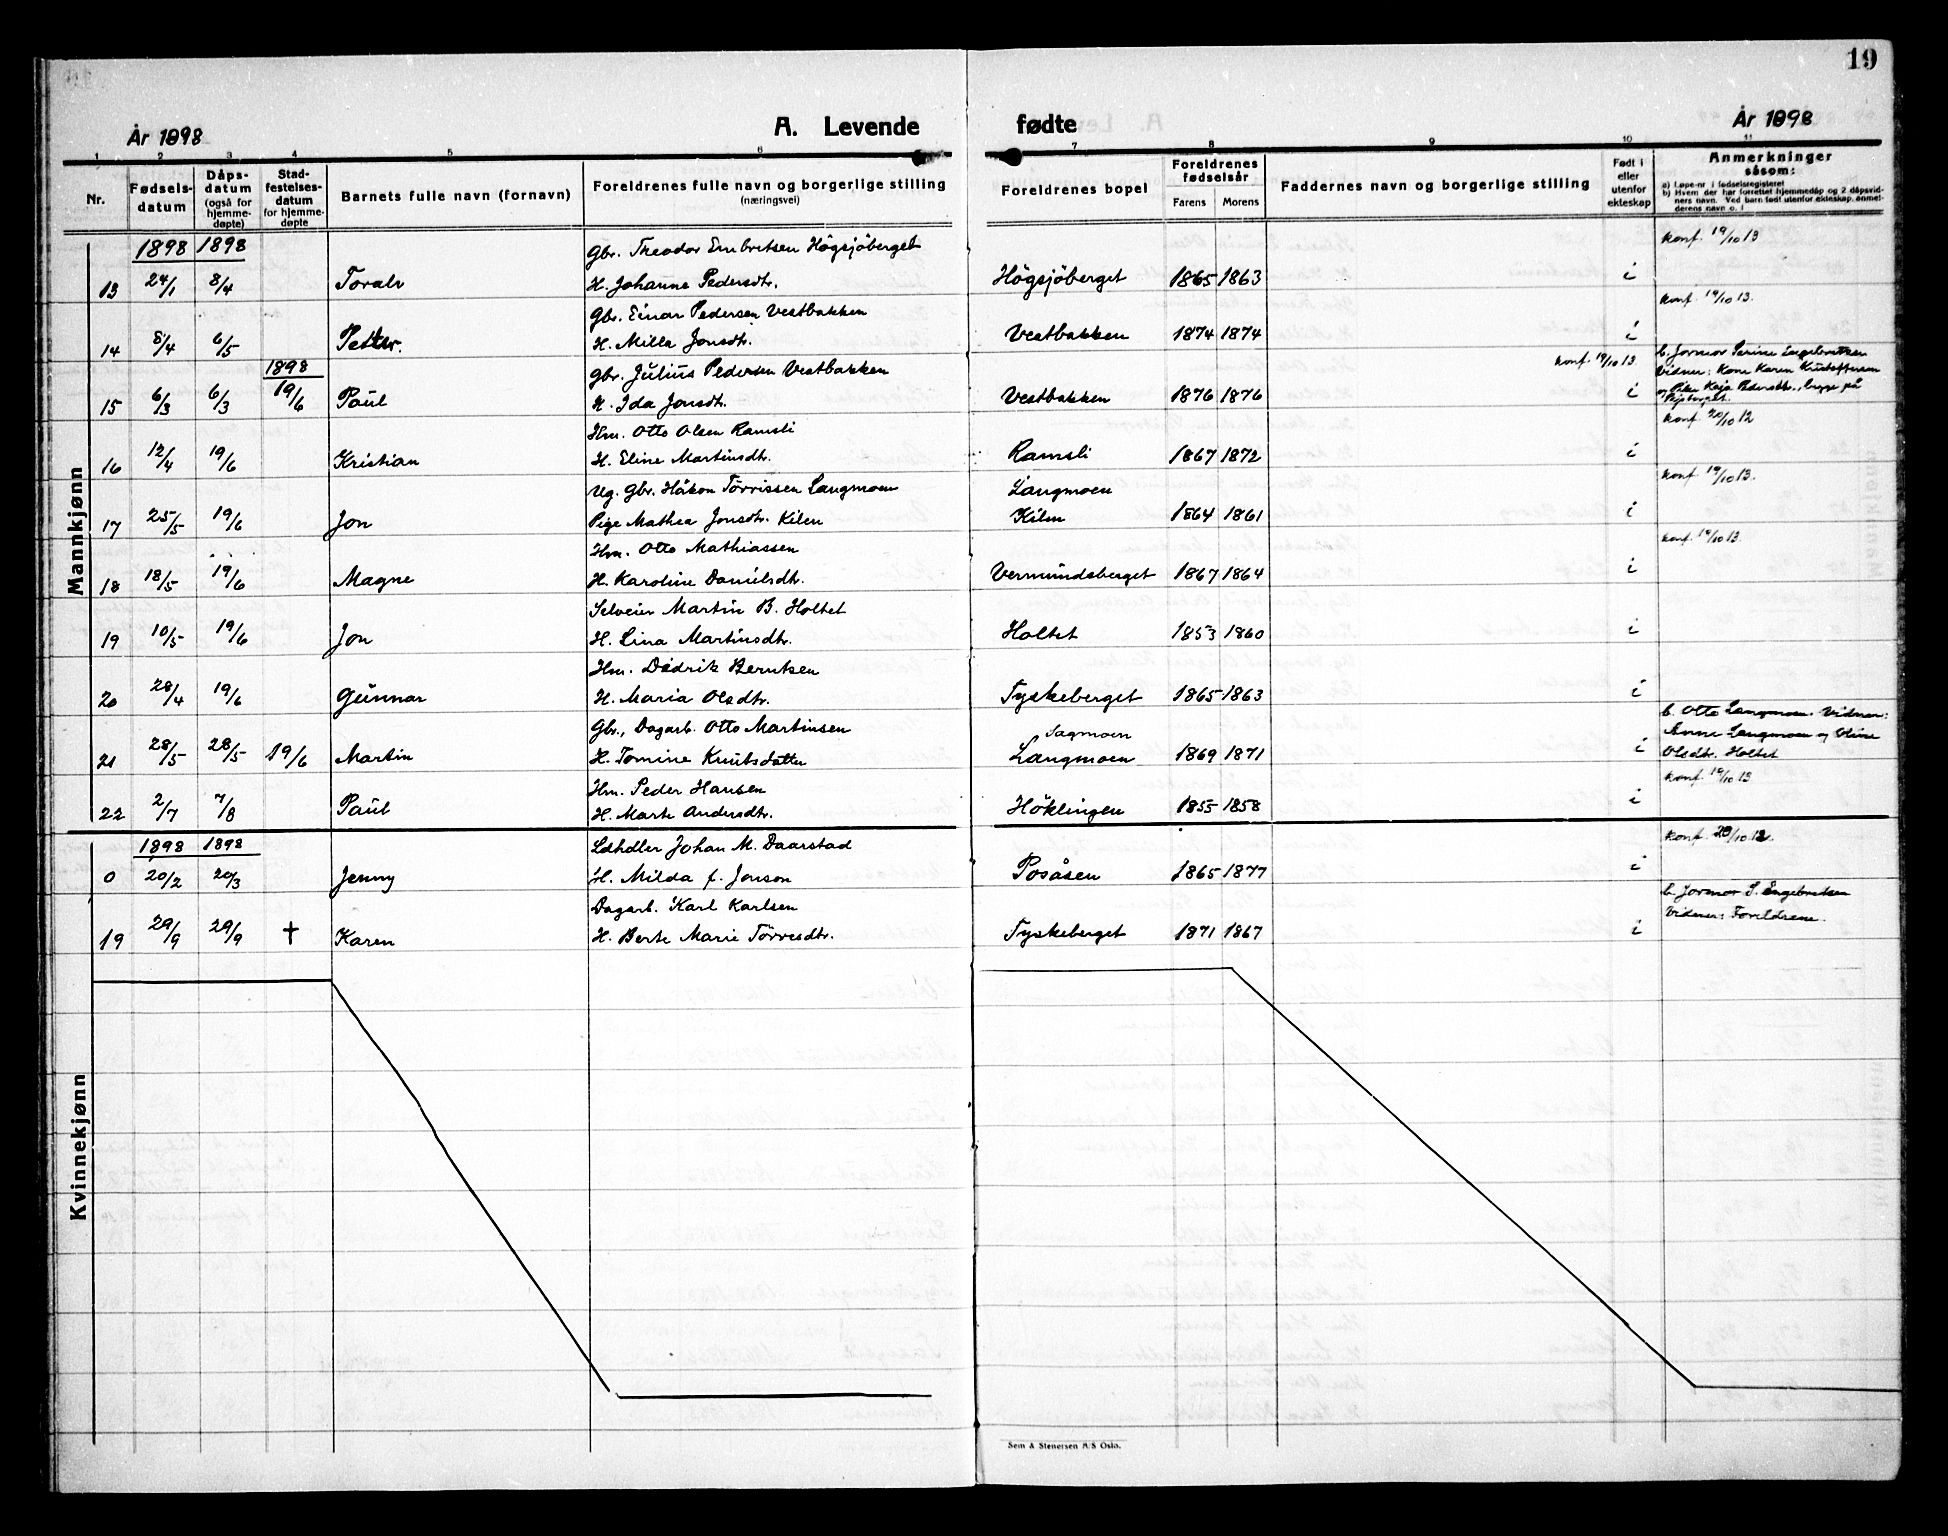 19
År 1898
A. Levende
fødte
År 1898
1 2 3 4 5 6 7 8 9 10 11
Nr.
Fødsels-
datum
Dåps-
datum
(også for
hjemme-
døpte)
Stad-
festelses-
datum
for hjemme-
døpte
Barnets fulle navn (fornavn)
Foreldrenes fulle navn og borgerlige stilling
(næringsvei)
Foreldrenes bopel
Foreldrenes
fødselsår
Farens
Morens
Faddernes navn og borgerlige stilling
Født i
eller
utenfor
ekteskap
Anmerkninger
såsom:
a) Løpe-nr i fødselsregisteret
b) Hvem der har forrettet hjemmedåp og 2 dåpsvid-
ners navn. Ved barn født utenfor ekteskap. anmel-
derens navn o. l
Mannkjønn
1898 1898 Gbr. Theodor Embretsen Högsjöberget konf. 19/10 13
13 24/1 8/4 Toralv H. Johanne Pedersdtr. Högsjöberget 1865 1863 i
Gbr. Einar Pedersen Vestbakken konf. 19/10 13.
14 8/4 6/5 Petter. H. Milla Jonsdtr. Vestbakken 1874 1874 i
1898 Gbr. Julius Pedersen Vestbakken konf. 19/10 13 b. Jormor Serine Engebretsen
Vidner: Kone Karen Kristoffersen
15 6/3 6/3 19/6 Paul H. Ida Jonsdtr. Vestbakken 1876 1876 i og Pike Kaja Pedersdtr., begge på
Hm. Otto Olsen Ramsli konf. 20/10 12
16 12/4 19/6 Kristian H. Eline Martinsdtr. Ramsli 1867 1872 i
Ug. Gbr. Håkon Törrissen Langmoen Langmoen konf. 19/10 13.
17 25/5 19/6 Jon Pige Mathea Jonsdtr. Kilen Kilen 1864 1861 i
Hm. Otto Mathiassen konf. 19/10 13.
18 18/5 19/6 Magne H. Karoline Danielsdtr. Vermundsberget 1867 1864 i
Selveier Martin B. Holtet
19 10/5 19/6 Jon H. Lina Martinsdtr. Holtet 1853 1860 i
Hm. Didrik Berntsen
20 28/4 19/6 Gunnar H. Maria Olsdtr. Tyskeberget 1865 1863 i
Gbr., Dagarb. Otto Martinsen Sagmoen b. Otto Langmoen. Vidner:
Anne Langmoen og Oline
21 28/5 28/5 19/6 Martin H. Tomine Knutsdatter Langmoen 1869 1871 i Olsdtr. Holtet
Hm. Peder Hansen konf. 19/10 13
22 2/7 7/8 Paul H. Marte Andersdtr. Höklingen 1855 1858 i
Kvinnekjønn
1898 1898 Ldhdler Johan M. Daarstad konf. 20/10 12.
0 20/2 20/3 Jenny H. Milda f. Jonson Posåsen 1865 1877 i
Dagarb. Karl Karlsen b. Jormor S. Engebretsen
Vidner: Foreldrene.
19 29/9 29/9 † Karen H. Berte Marie Törresdtr. Tyskeberget 1871 1867 i
Sem & Stenersen A/S Oslo.